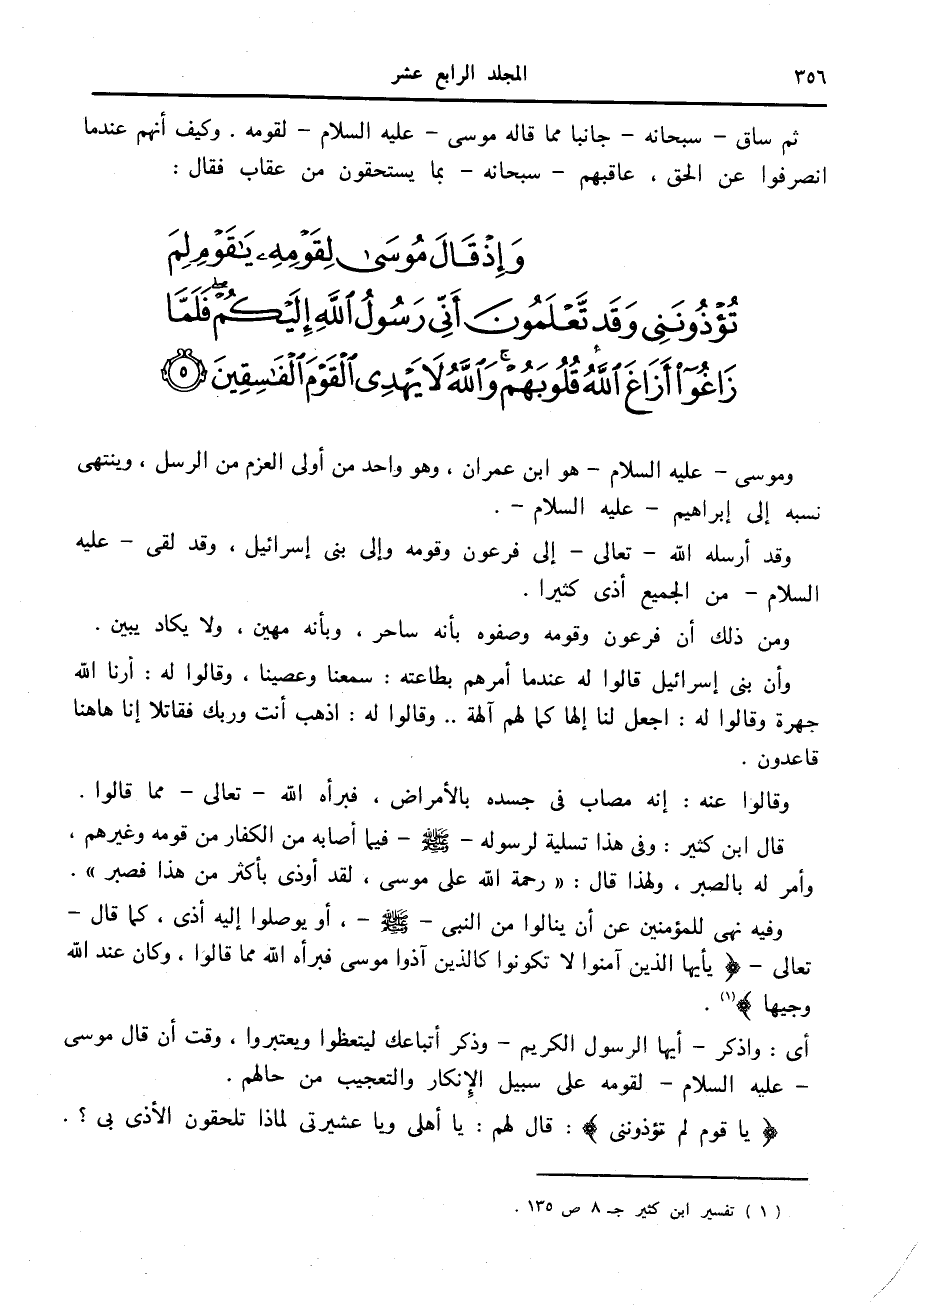 ٣٥٦
المجلد الرابع عشر
ثم ساق – سبحانه – جانبا مما قاله موسى – عليه السلام – لقومه . وكيف أنهم عندما
انصرفوا عن الحق ، عاقبهم – سبحانه – بما يستحقون من عقاب فقال :
وَإِذْ قَالَ مُوسَىٰ لِقَوْمِهِۦ يَٰقَوْمِ لِمَ
تُؤْذُونَنِى وَقَد تَّعْلَمُونَ أَنِّى رَسُولُ ٱللَّهِ إِلَيْكُمْ ۖ فَلَمَّا
زَاغُوٓا۟ أَزَاغَ ٱللَّهُ قُلُوبَهُمْ ۚ وَٱللَّهُ لَا يَهْدِى ٱلْقَوْمَ ٱلْفَٰسِقِينَ ٥
وموسى – عليه السلام – هو ابن عمران ، وهو واحد من أولى العزم من الرسل ، وينتهى
نسبه إلى إبراهيم – عليه السلام – .
وقد أرسله الله – تعالى – إلى فرعون وقومه وإلى بنى إسرائيل ، وقد لقى – عليه
السلام – من الجميع أذى كثيرا .
ومن ذلك أن فرعون وقومه وصفوه بأنه ساحر ، وبأنه مهين ، ولا يكاد يبين .
وأن بنى إسرائيل قالوا له عندما أمرهم بطاعته : سمعنا وعصينا ، وقالوا له : أرنا الله
جهرة وقالوا له : اجعل لنا إلها كما لهم آلهة .. وقالوا له : اذهب أنت وربك فقاتلا إنا هاهنا
قاعدون .
وقالوا عنه : إنه مصاب فى جسده بالأمراض ، فبرأه الله – تعالى – مما قالوا .
قال ابن كثير : وفى هذا تسلية لرسوله – ﷺ – فيما أصابه من الكفار من قومه وغيرهم ،
وأمر له بالصبر ، ولهذا قال : « رحمة الله على موسى ، لقد أوذى بأكثر من هذا فصبر » .
وفيه نهى للمؤمنين عن أن ينالوا من النبى – ﷺ – ، أو يوصلوا إليه أذى ، كما قال –
تعالى – ﴿ يأيها الذين آمنوا لا تكونوا كالذين آذوا موسى فبرأه الله مما قالوا ، وكان عند الله
وجيها ﴾(١) .
أى : واذكر – أيها الرسول الكريم – وذكر أتباعك ليتعظوا ويعتبروا ، وقت أن قال موسى
– عليه السلام – لقومه على سبيل الإنكار والتعجيب من حالهم .
﴿ يا قوم لم تؤذوننى ﴾ : قال لهم : يا أهلى ويا عشيرتى لماذا تلحقون الأذى بى ؟ .
( ١ ) تفسير ابن كثير جـ ٨ ص ١٣٥ .